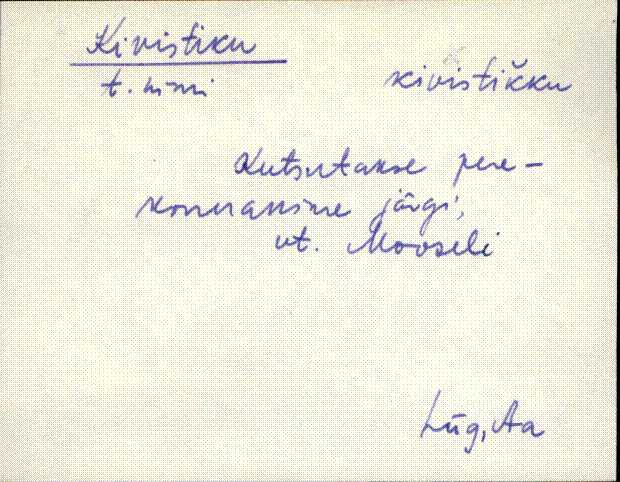 Kivistiku
t. nimi
kivistikku
Kutsutakse pere-
konnanime järgi,
vt. Mooseli
Lüg, Aa